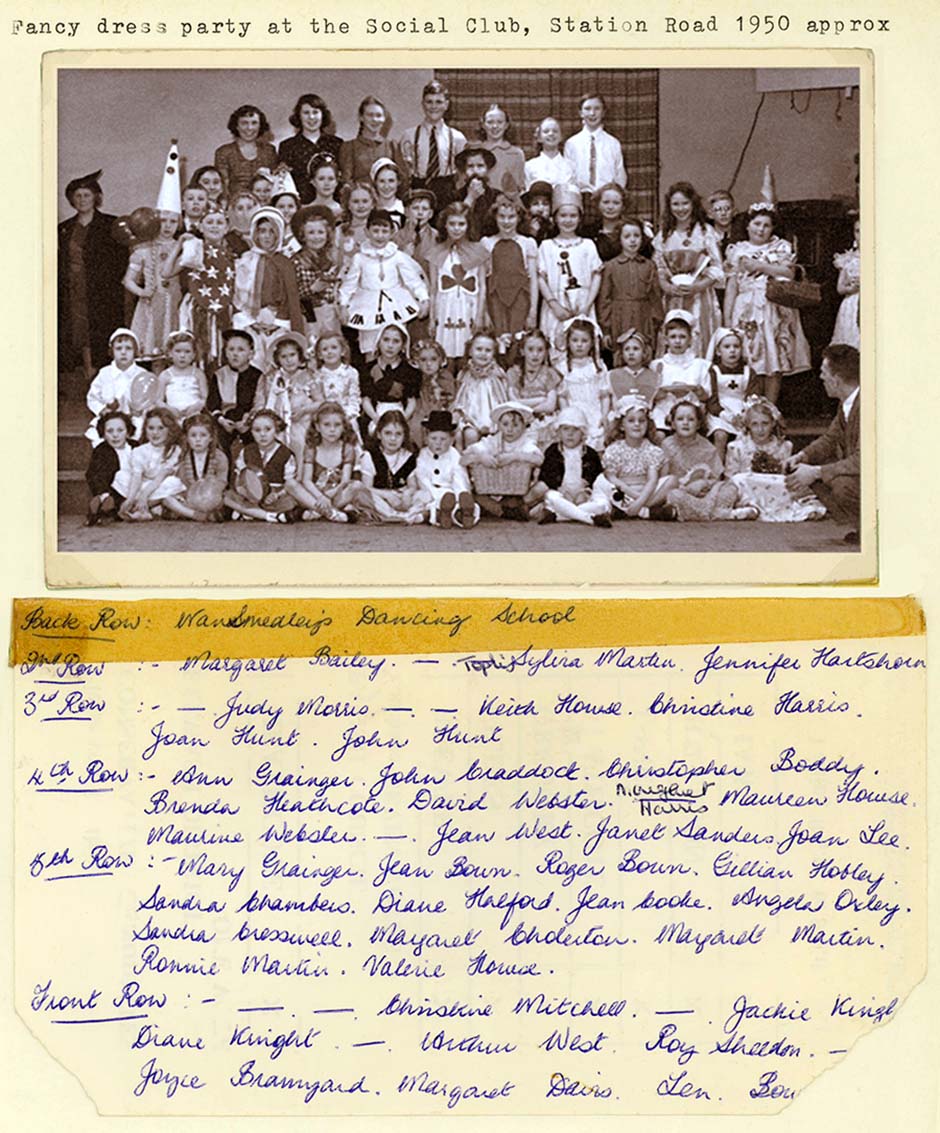 Fancy dress party at the Social Club, Station Road 1950 approx
Back Row: Nan Smedley's Dancing School
2nd Row :- Margaret Bailey. — Toplis Sylvia Martin. Jennifer Hartshorn
3rd Row :- — Judy Morris. —. — Keith Howse. Christine Harris.
Joan Hunt. John Hunt
4th Row :- Ann Grainger. John Craddock. Christopher Boddy.
Brenda Heathcote. David Webster. Harris Maureen Howse.
Maurine Webster. —. Jean West. Janet Sanders. Joan Lee.
5th Row :- Mary Grainger. Jean Bown. Roger Bown. Gillian Hobley.
Sandra Chambers. Diane Halford. Jean Cooke. Angela Oxley.
Sandra Cresswell. Margaret Chderton. Margaret Martin.
Ronnie Martin. Valerie Howse.
Front Row :- —. —. Christine Mitchell. — Jackie Knigh
Diane Knight. —. Arthur West. Roy Sheldon. —
Joyce Bramyard. Margaret Davis. Len. Bow